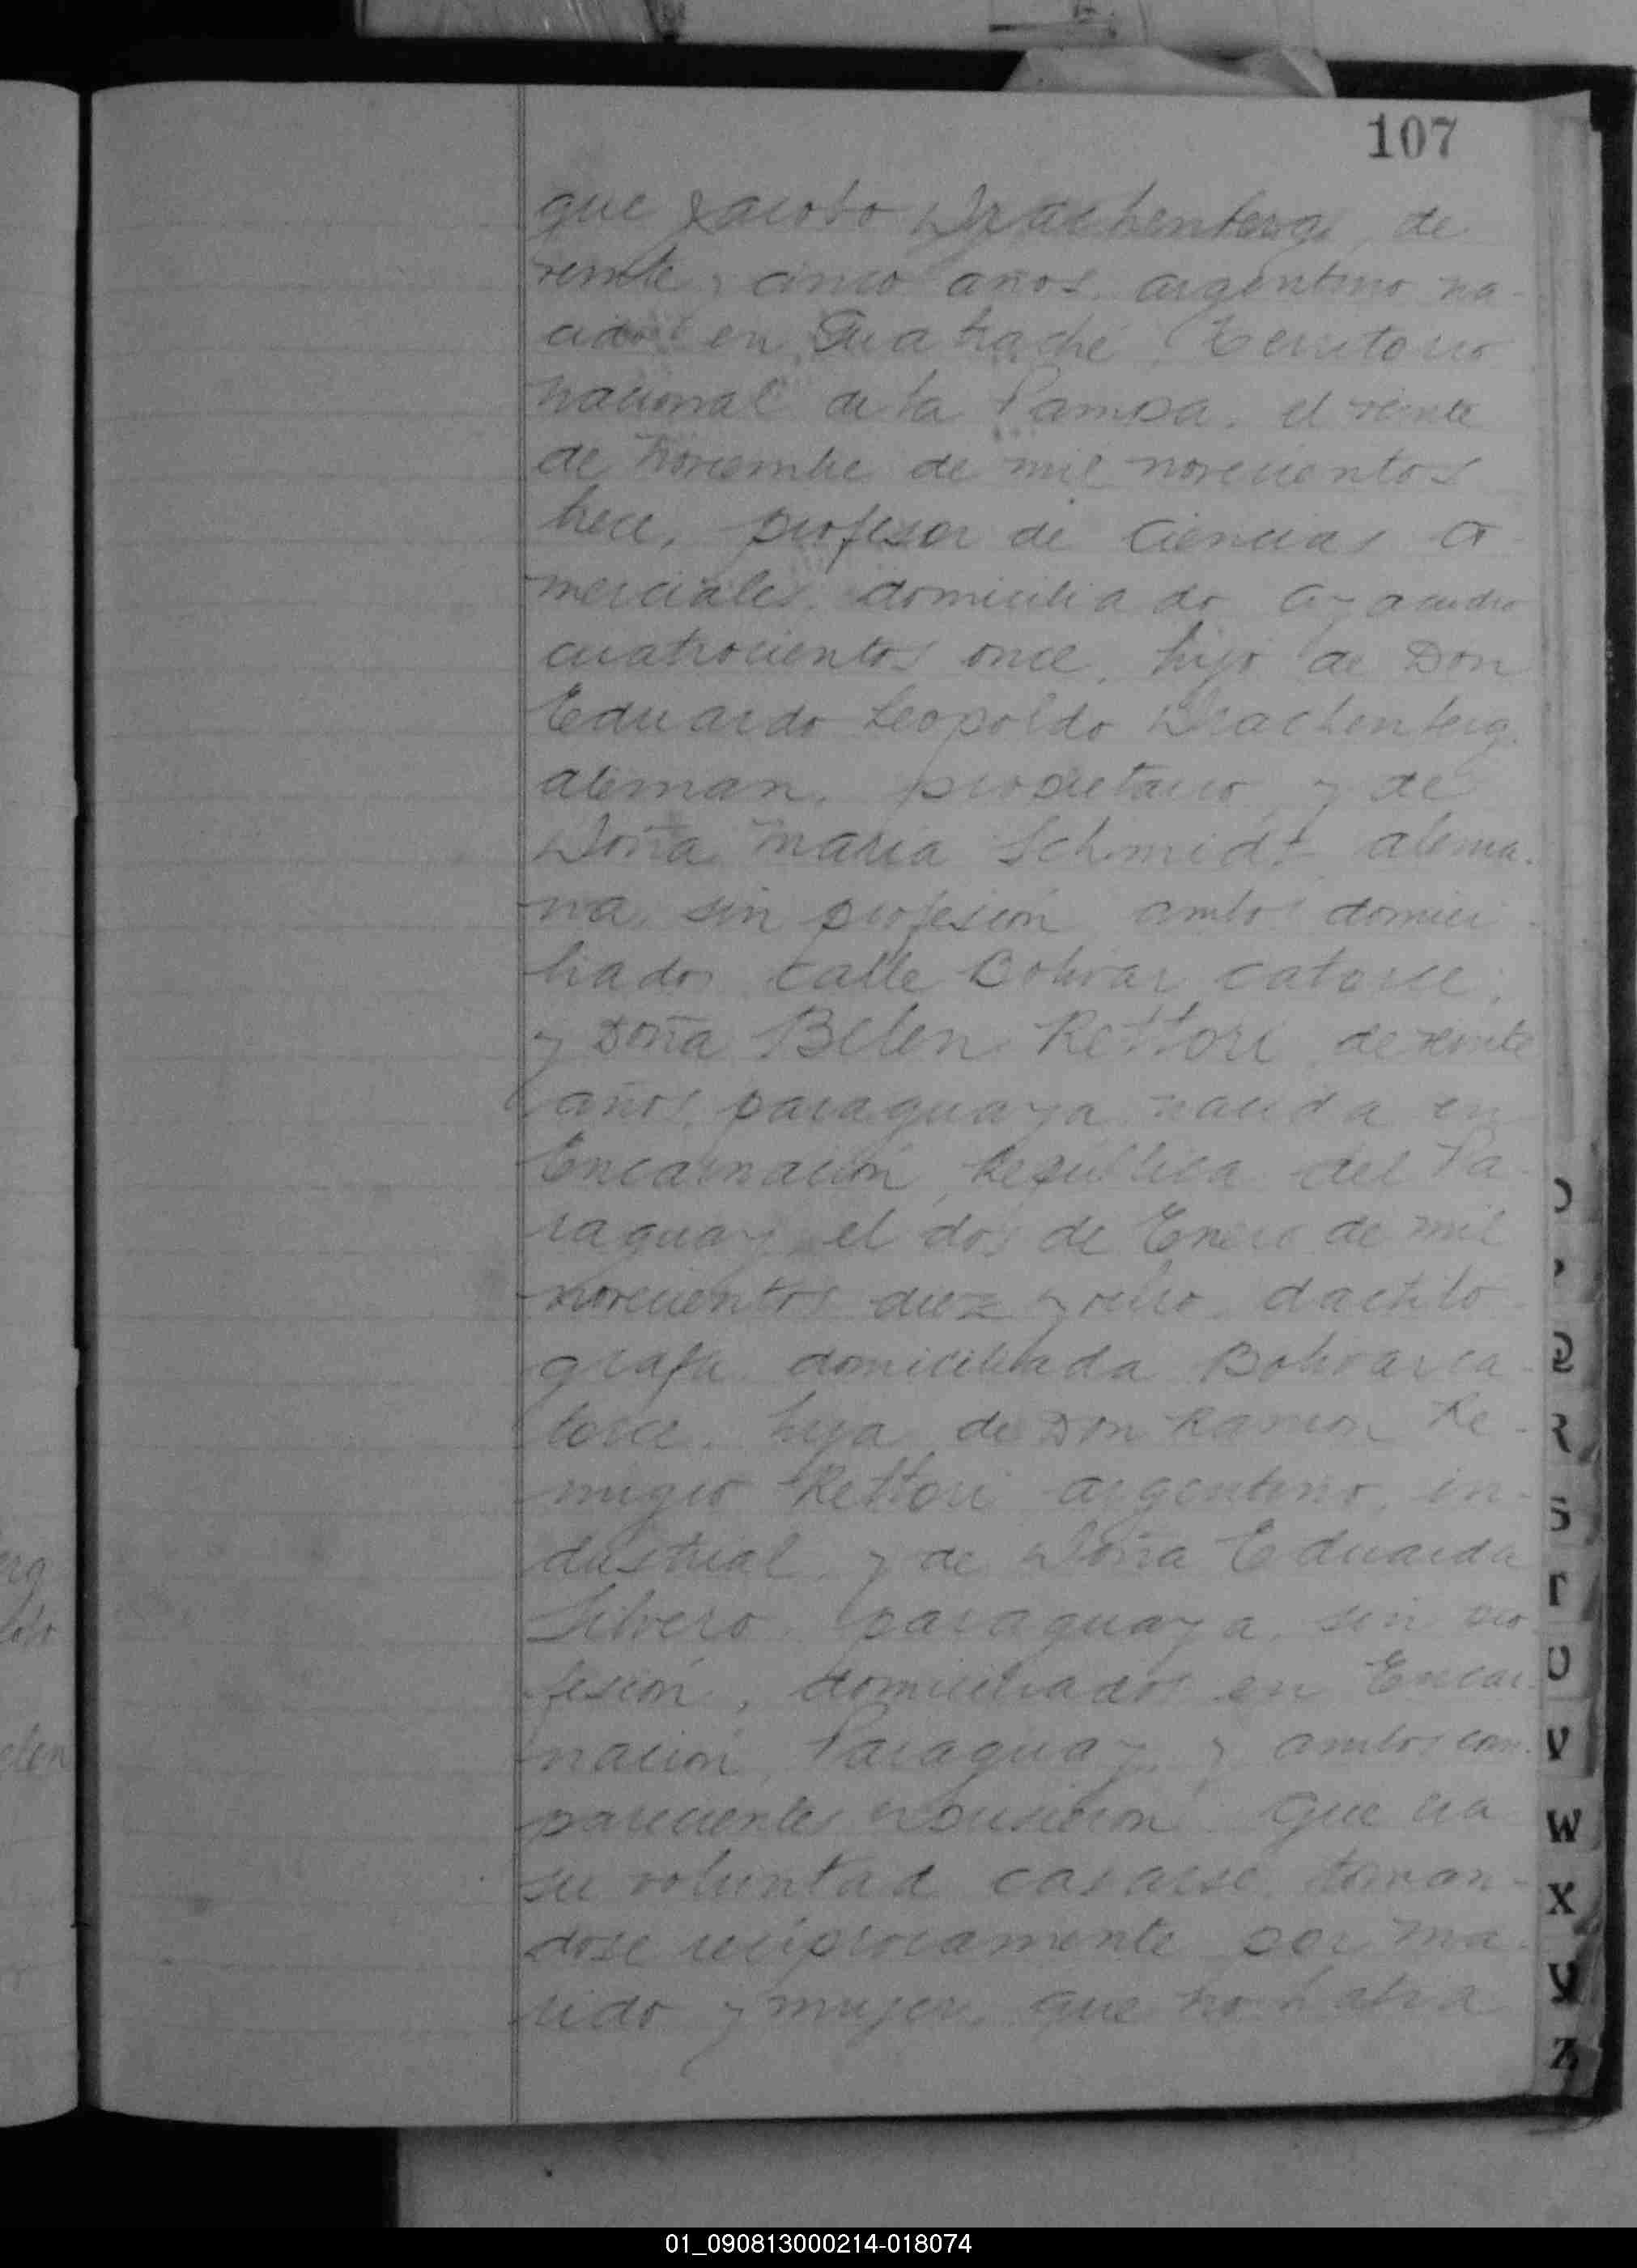 107
que Jacobo Drachenberg, de
veinte y cinco años, argentino na-
cido en Guatraché, Territorio
nacional de la Pampa, el veinte
de Noviembre de mil novecientos
trece, profesor de Ciencias Co-
merciales, domiciliado Ayacucho
cuatrocientos once, hijo de Don
Eduardo Leopoldo Drachenberg,
aleman, propietario, y de
Doña Maria Schmidt, alema-
na, sin profesión, ambos domici-
liados calle Bolivar catorce;
y Doña Belen Rettori, de veinte
años, paraguaya nacida en
Encarnación, República del Pa-
raguay, el dos de Enero de mil
novecientos diez y ocho, dactilo-
grafa, domiciliada Bolivar ca-
torce, hija de Don Ramon Re-
migio Rettori argentino, in-
dustrial, y de Doña Eduarda
Silvero, paraguaya, sin pro-
fesión, domiciliados en Encar-
nación, Paraguay, y ambos com-
parecientes expusieron: Que era
su voluntad casarse, toman-
dose recíprocamente por ma-
rido y mujer, que no habia
Q
R
S
T
U
V
W
X
Y
Z
01_090813000214-018074